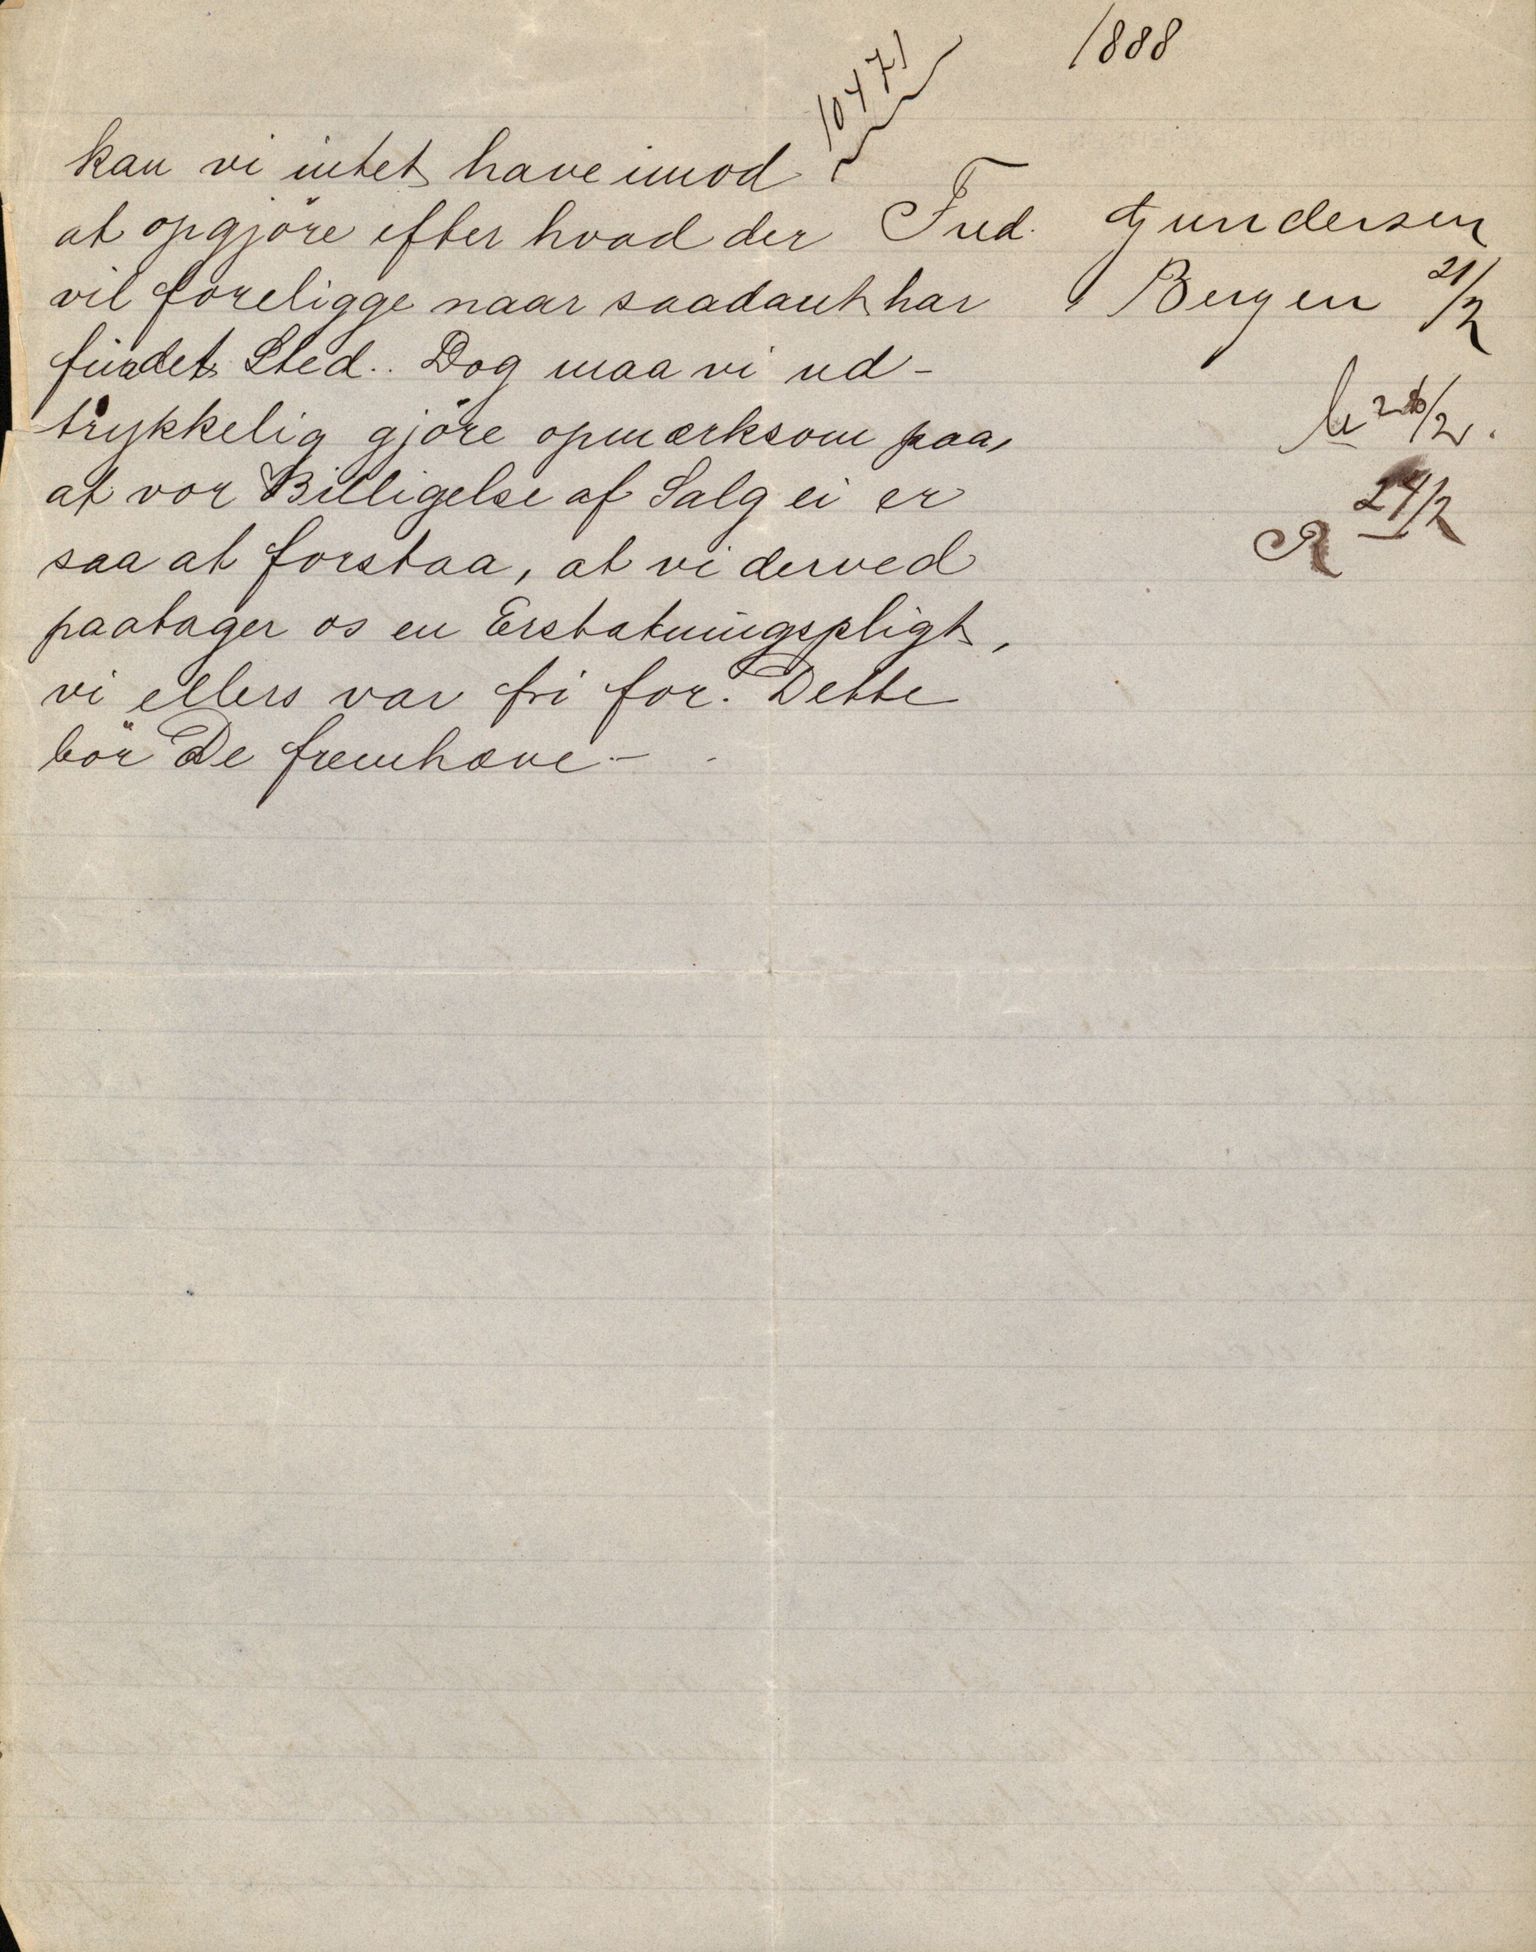 1888
10471
kan vi intet have imod
at opgjöre efter hvad der
vil foreligge naar saadant har
fundet Sted.. Dog maa vi ud-
trykkelig gjöre opmærksom paa,
at vor Billigelse af Salg ei er
saa at forstaa, at vi derved
paatager os en Erstatningspligt,
vi ellers var fri for. Dette
bör De fremhæve. -
Fred. Gundersen
Bergen 21/2
R 24/2